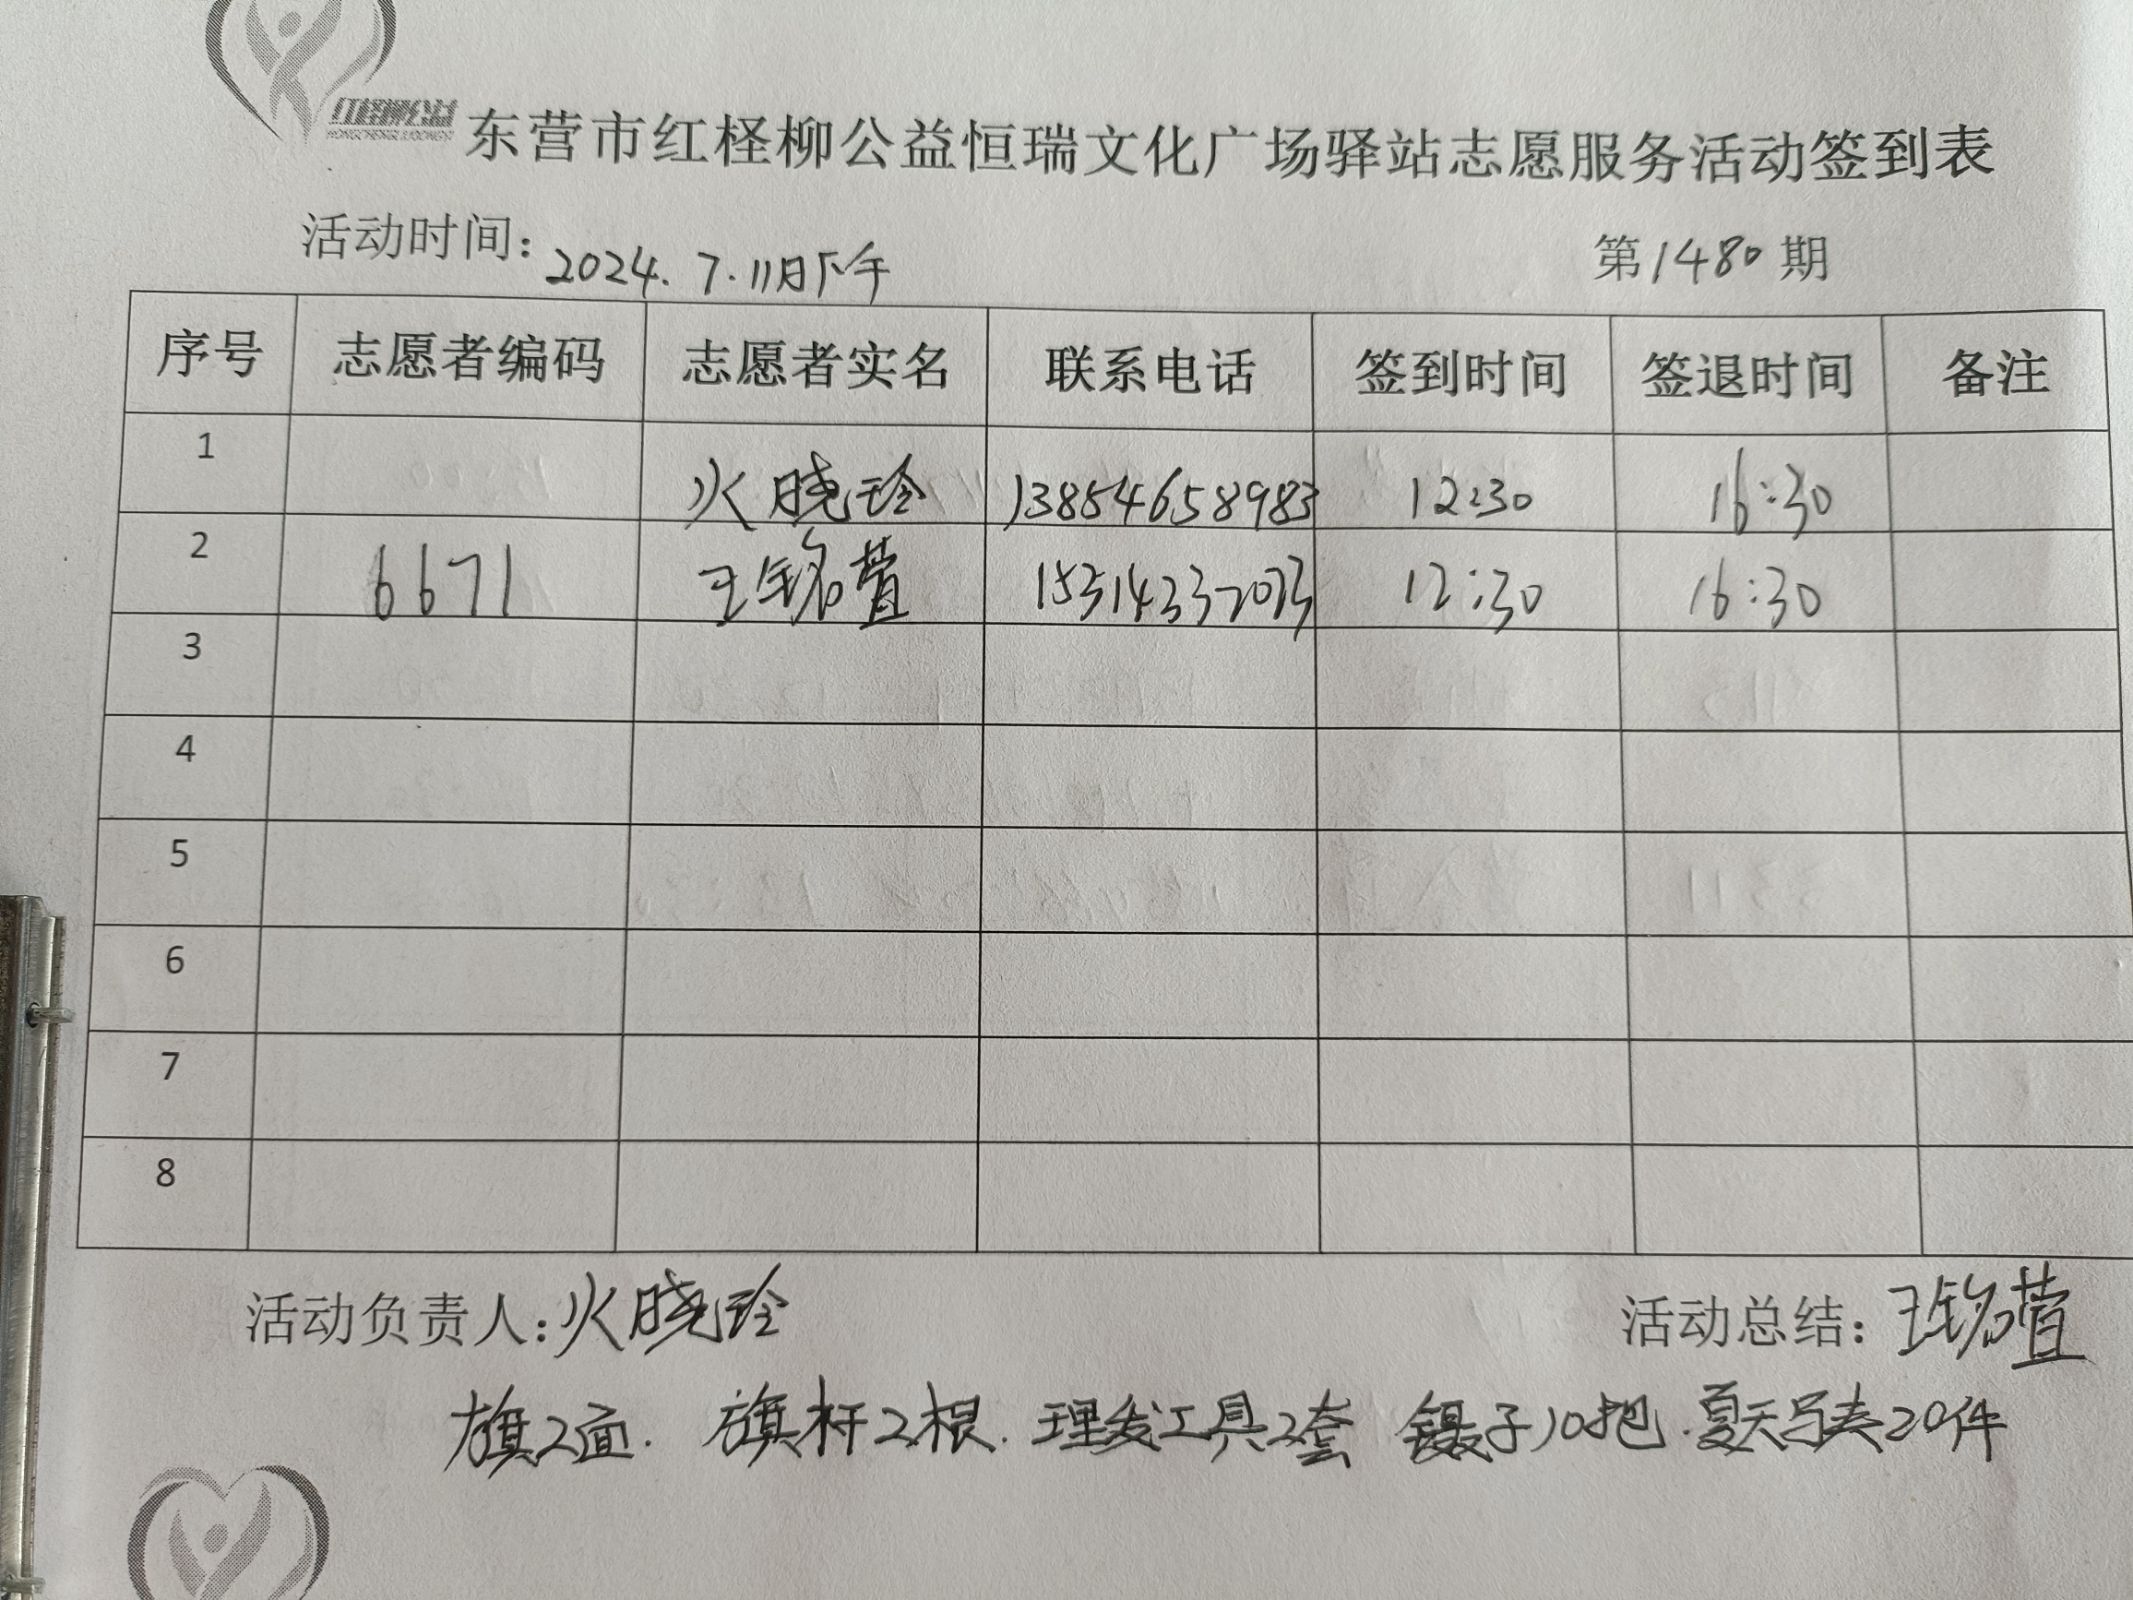 红柽柳公益
东营市红柽柳公益恒瑞文化广场驿站志愿服务活动签到表
活动时间：2024.7.11日下午 第1480期
序号 志愿者编码 志愿者实名 联系电话 签到时间 签退时间 备注
1 火晓玲 13854658983 12:30 16:30
2 6671 王铭萱 12:30 16:30
3
4
5
6
7
8
活动负责人：火晓玲 活动总结：王铭萱
旗2面. 旗杆2根. 理发工具2套 镊子10把. 夏天马夹20件